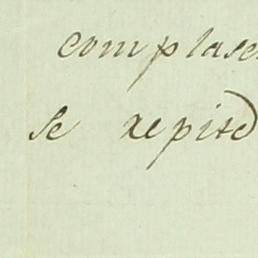 complase
se repite